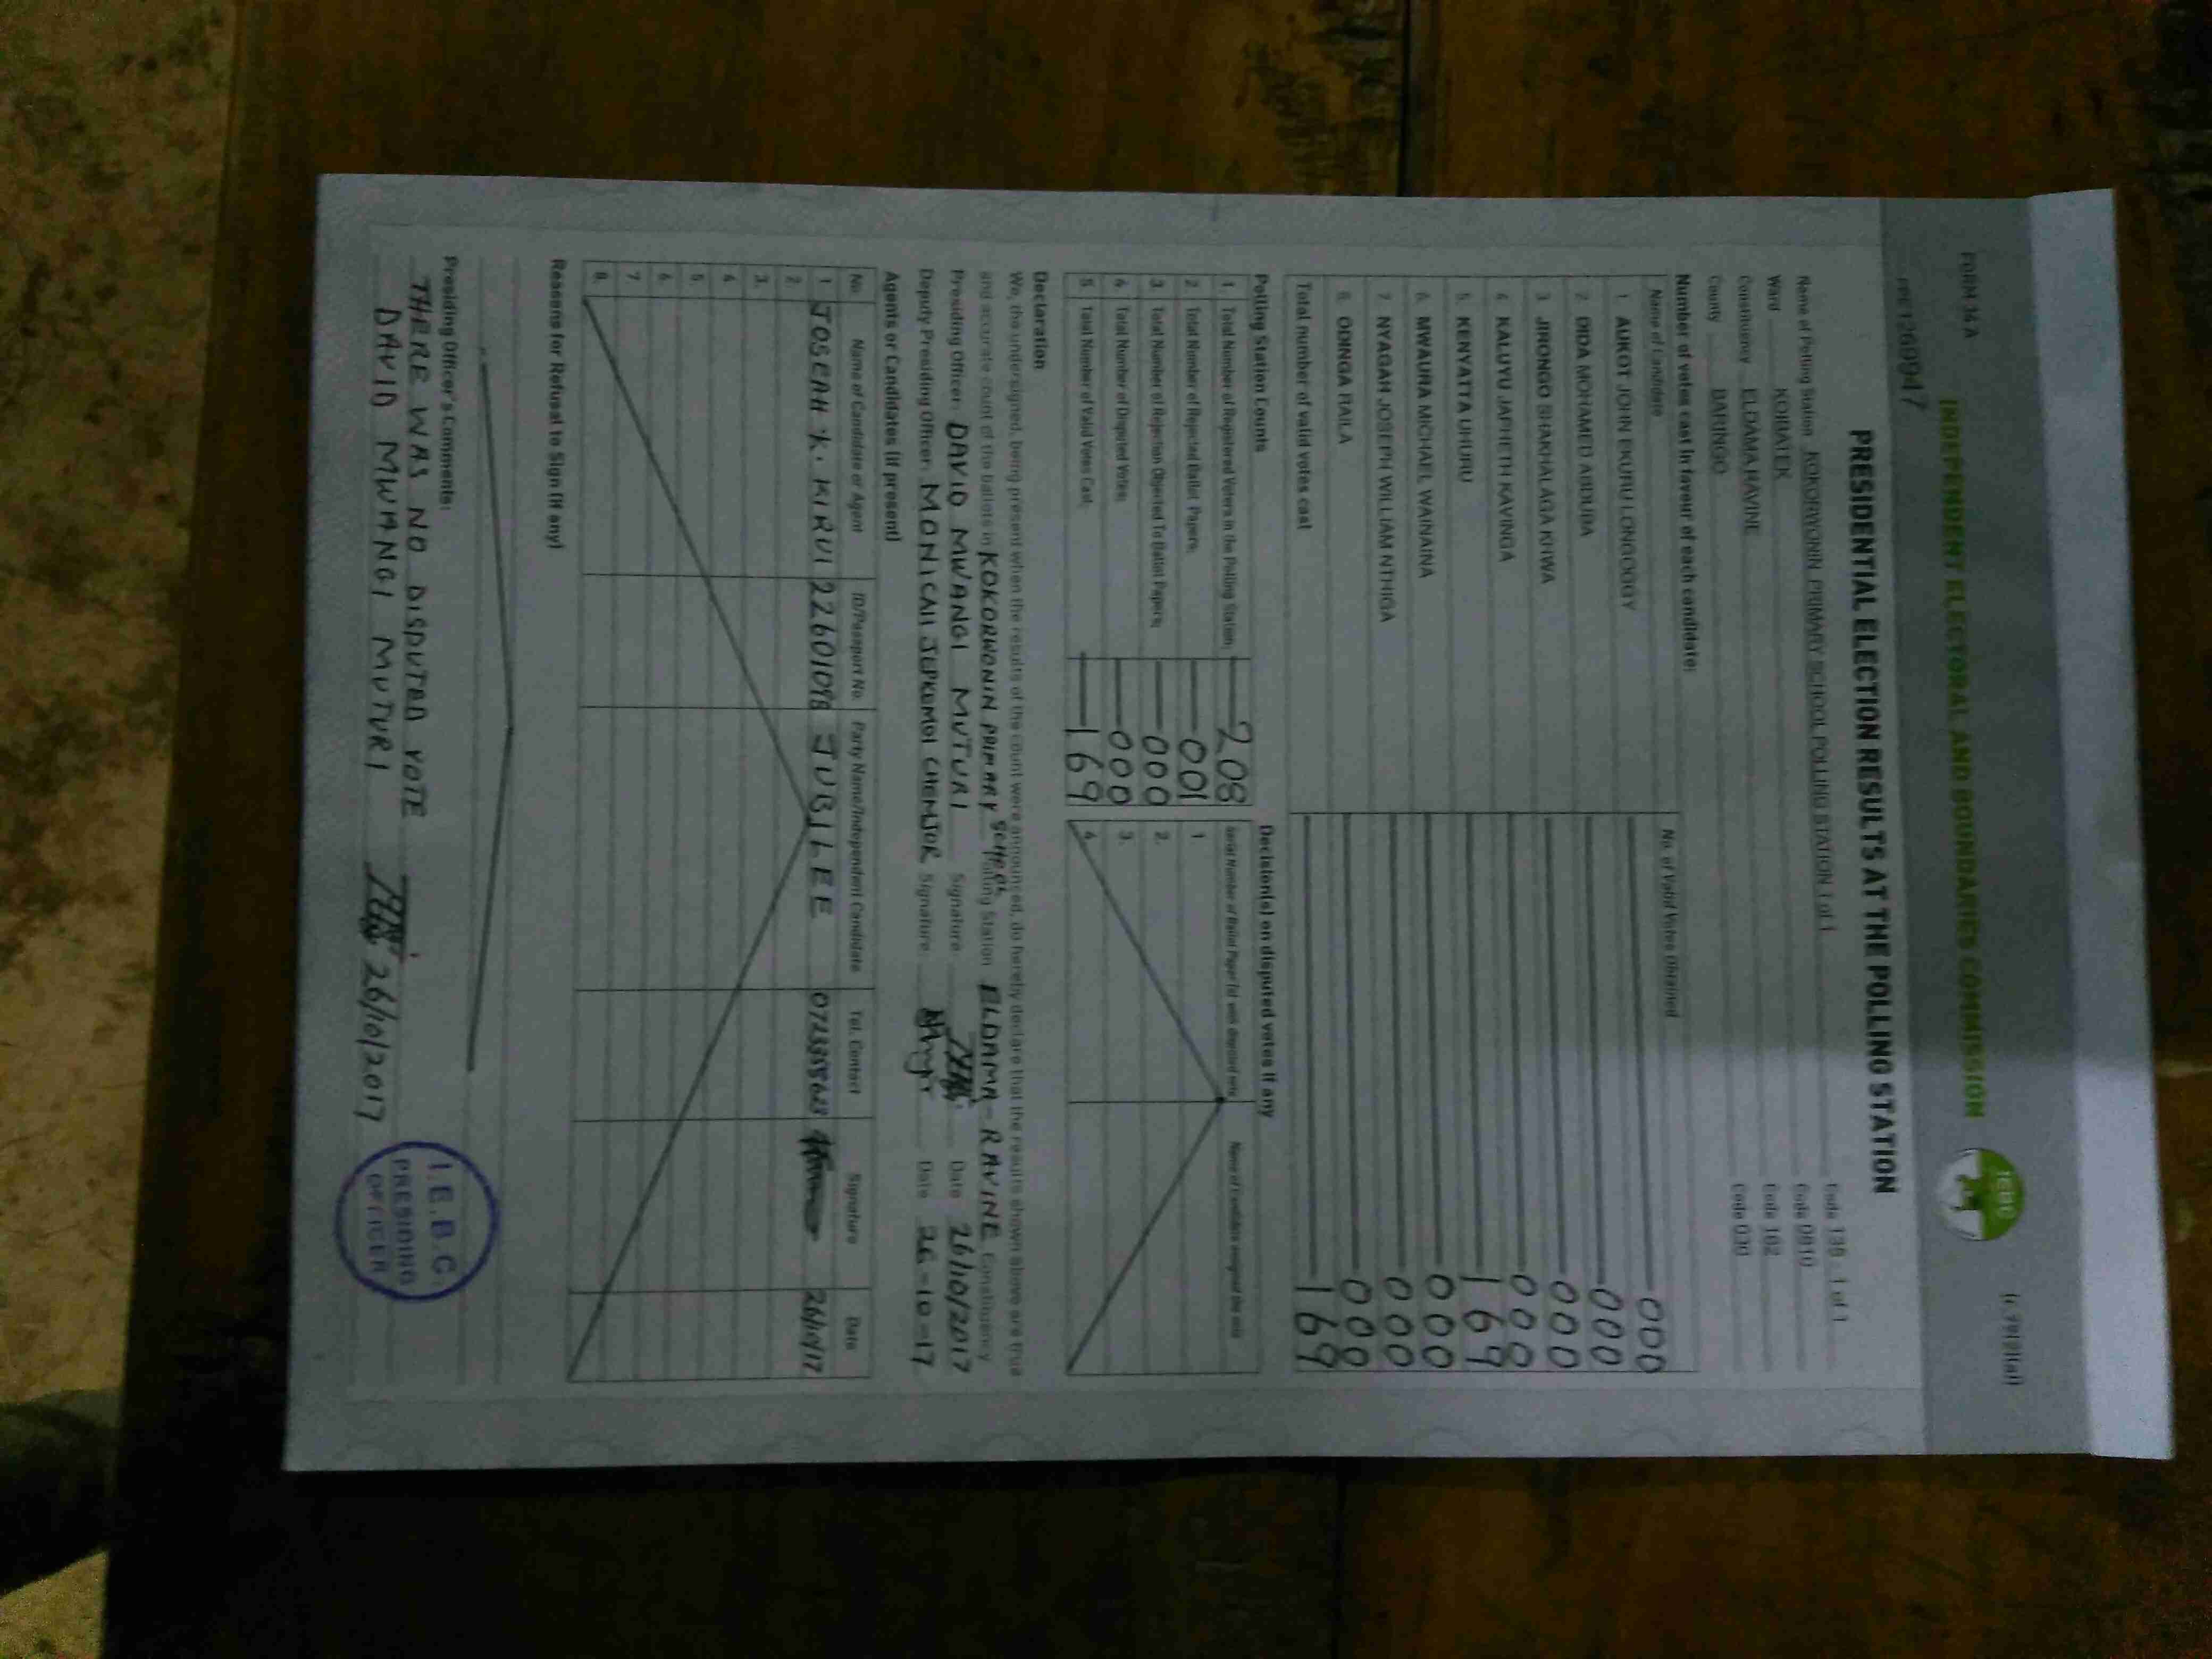 FORM 34 A
INDEPENDENT ELECTORAL AND BOUNDARIES COMMISSION
iebc
PRESIDENTIAL ELECTION RESULTS AT THE POLLING STATION
Name of Polling Station KOKORWONIN PRIMARY SCHOOL POLLING STATION 1 of 1 Code 138 - 1 of 1
Ward KOIBATEK Code 0810
Constituency ELDAMA RAVINE Code 162
County BARINGO Code 030
Number of votes cast in favour of each candidate:
Name of Candidate No. of Valid Votes Obtained
1 AUKOT JOHN EKURU LONGOGGY 000
2. DIDA MOHAMED ABDUBA 000
3. JIRONGO SHAKHALAGA KHWA 000
4 KALUYU JAPHETH KAVINGA 000
5. KENYATTA UHURU 169
6. MWAURA MICHAEL WAINAINA 000
7. NYAGAH JOSEPH WILLIAM NTHIGA 000
8. ODINGA RAILA 000
Total number of valid votes cast 169
Polling Station Counts
1. Total Number of Registered Voters in the Polling Station; 208
2. Total Number of Rejected Ballot Papers; 001
3. Total Number of Rejection Objected To Ballot Papers; 000
4. Total Number of Disputed Votes; 000
5. Total Number of Valid Votes Cast; 169
Decision(s) on disputed votes if any
1
2.
3.
4.
Declaration
We, the undersigned, being present when the results of the count were announced, do hereby declare that the results shown above are true
and accurate count of the ballots in KOKORWONIN PRIMARY SCHOOL Polling Station ELDAMA-RAVINE Constituency
Presiding Officer: DAVID MWANGI MUTURI Signature Date 26/10/2017
Deputy Presiding Officer: MONICAH JEPKEMOI CHEMJOR Signature Date 26-10-17
Agents or Candidates (if present)
No. Name of Candidate or Agent ID/Passport No. Party Name/Independent Candidate Tel. Contact Signature Date
1 JOSEAH K. KIRUI JUBILEE 26/10/17
2.
3.
4
5.
6.
7.
8.
Reasons for Refusal to Sign (if any)
Presiding Officer's Comments:
THERE WAS NO DISPUTED VOTE
DAVID MWANGI MUTURI 26/10/2017
I.E.B.C.
PRESIDING
OFFICER